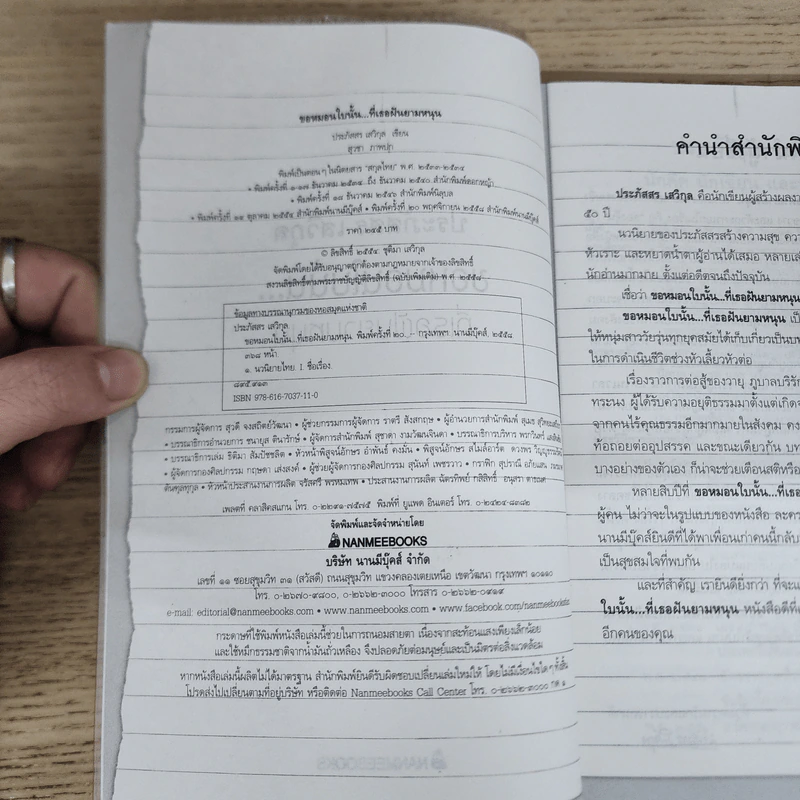 ขอหมอนใบนั้น...ที่เธอฝันยามหนุน
ประภัสสร เสวิกุล เขียน
สุวชา ภาพปก
พิมพ์เป็นตอน ๆ ในนิตยสาร "สกุลไทย" พ.ศ. ๒๕๓๓-๒๕๓๔
• พิมพ์ครั้งที่ ๑-๑๗ ธันวาคม ๒๕๓๔ ถึง ธันวาคม ๒๕๔๐ สำนักพิมพ์ดอกหญ้า
• พิมพ์ครั้งที่ ๑๘ ธันวาคม ๒๕๔๖ สำนักพิมพ์นิลุบล
• พิมพ์ครั้งที่ ๑๙ ตุลาคม ๒๕๕๔ สำนักพิมพ์นานมีบุ๊คส์ • พิมพ์ครั้งที่ ๒๐ พฤศจิกายน ๒๕๕๘ สำนักพิมพ์นานมีบุ๊คส์
ราคา ๒๔๕ บาท
© ลิขสิทธิ์ ๒๕๕๔ ชุติมา เสวิกุล
จัดพิมพ์โดยได้รับอนุญาตถูกต้องตามกฎหมายจากเจ้าของลิขสิทธิ์
สงวนลิขสิทธิ์ตามพระราชบัญญัติลิขสิทธิ์ (ฉบับเพิ่มเติม) พ.ศ. ๒๕๕๘
ข้อมูลทางบรรณานุกรมของหอสมุดแห่งชาติ
ประภัสสร เสวิกุล
ขอหมอนใบนั้น...ที่เธอฝันยามหนุน. พิมพ์ครั้งที่ ๒๐. -- กรุงเทพฯ: นานมีบุ๊คส์, ๒๕๕๘
๓๖๘ หน้า.
๑. นวนิยายไทย. I. ชื่อเรื่อง.
๘๙๕.๙๑๓
ISBN 978-616-7037-11-0
กรรมการผู้จัดการ สุวดี จงสถิตย์วัฒนา • ผู้ช่วยกรรมการผู้จัดการ ราตรี สังสกฤษ • ผู้อำนวยการสำนักพิมพ์ สุเมธ
• บรรณาธิการอำนวยการ ชนายุส ตินารักษ์ • ผู้จัดการสำนักพิมพ์ สุชาดา งามวัฒนจินดา • บรรณาธิการบริหาร พรกวินทร์
• บรรณาธิการเล่ม ธิติมา สัมปัชชลิต • หัวหน้าพิสูจน์อักษร อำพันธ์ คงมั่น • พิสูจน์อักษร สไมล์อาร์ต ดวงพร
• ผู้จัดการกองศิลปกรรม กฤษดา เส่งสงค์ • ผู้ช่วยผู้จัดการกองศิลปกรรม สุนันท์ เพชรวาว • กราฟิก สุปราณี
• หัวหน้าประสานงานการผลิต จรัสศรี พรหมเทพ • ประสานงานการผลิต ฉัตรทิพย์
เพลตที่ คลาสิคสแกน โทร. ๐-๒๒๙๑-๗๕๗๕ พิมพ์ที่ ยูแพด อินเตอร์ โทร. ๐-๒๔๒๔-๘๓๘๒
จัดพิมพ์และจัดจำหน่ายโดย
NANMEEBOOKS
บริษัท นานมีบุ๊คส์ จำกัด
เลขที่ ๑๑ ซอยสุขุมวิท ๓๑ (สวัสดี) ถนนสุขุมวิท แขวงคลองเตยเหนือ เขตวัฒนา กรุงเทพฯ ๑๐๑๑๐
โทร. ๐-๒๖๗๐-๙๘๐๐, ๐-๒๖๖๒-๓๐๐๐ โทรสาร ๐-๒๖๖๒-๐๙๑๙
e-mail: editorial@nanmeebooks.com • www.nanmeebooks.com • www.facebook.com/nanmeebooksfan
กระดาษที่ใช้พิมพ์หนังสือเล่มนี้ช่วยในการถนอมสายตา เนื่องจากสะท้อนแสงเพียงเล็กน้อย
และใช้หมึกธรรมชาติจากน้ำมันถั่วเหลือง จึงปลอดภัยต่อมนุษย์และเป็นมิตรต่อสิ่งแวดล้อม
หากหนังสือเล่มนี้ผลิตไม่ได้มาตรฐาน สำนักพิมพ์ยินดีรับผิดชอบเปลี่ยนเล่มใหม่ให้ โดยไม่มีเงื่อนไขใดๆ ทั้งสิ้น
โปรดส่งไปเปลี่ยนตามที่อยู่บริษัท หรือติดต่อ Nanmeebooks Call Center โทร. ๐-๒๖๖๒-๓๐๐๐ กด ๑
คำนำสำนักพิ
ประภัสสร เสวิกุล คือนักเขียนผู้สร้างผลงา
๕๐ ปี
นวนิยายของประภัสสรสร้างความสุข ควา
หัวเราะ และหยาดน้ำตาผู้อ่านได้เสมอ หลายเล่
นักอ่านมากมาย ตั้งแต่อดีตจนถึงปัจจุบัน
เชื่อว่า ขอหมอนใบนั้น...ที่เธอฝันยามหนุน
ขอหมอนใบนั้น...ที่เธอฝันยามหนุน เป็
ให้หนุ่มสาววัยรุ่นทุกยุคสมัยได้เก็บเกี่ยวเป็นบท
ในการดำเนินชีวิตช่วงหัวเลี้ยวหัวต่อ
เรื่องราวการต่อสู้ของวายุ ภูบาลบริรัก
ทระนง ผู้ได้รับความอยุติธรรมมาตั้งแต่เกิดจ
จากคนไร้คุณธรรมอีกมากมายในสังคม คง
ท้อถอยต่ออุปสรรค และขณะเดียวกัน บท
บางอย่างของตัวเอง ก็น่าจะช่วยเตือนสติหรือ
หลายสิบปีที่ ขอหมอนใบนั้น...ที่เธอ
ผู้คน ไม่ว่าจะในรูปแบบของหนังสือ ละคร
นานมีบุ๊คส์ยินดีที่ได้พาเพื่อนเก่าคนนี้กลับ
เป็นสุขสมใจที่พบกัน
และที่สำคัญ เรายินดียิ่งกว่า ที่จะแ
ใบนั้น...ที่เธอฝันยามหนุน หนังสือดีที่
อีกคนของคุณ